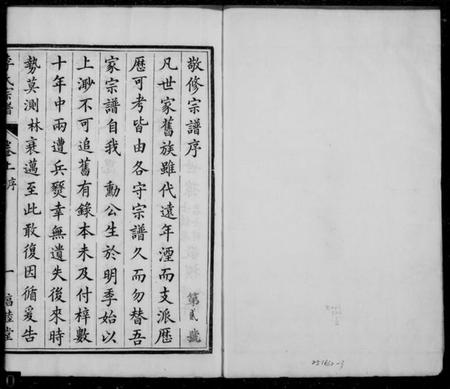 敬修宗譜序
凡世家舊族雖代遠年湮而支派歷
歷可考皆由各守宗譜久而勿替吾
家宗譜自我 勳公生於明季始以
上渺不可追舊有錄本未及付梓數
十年中兩遭兵燹幸無遺失後來時
勢莫測林衰邁至此敢復因循爰告
李氏宗譜 卷上 序 一
第貳號
251612-3